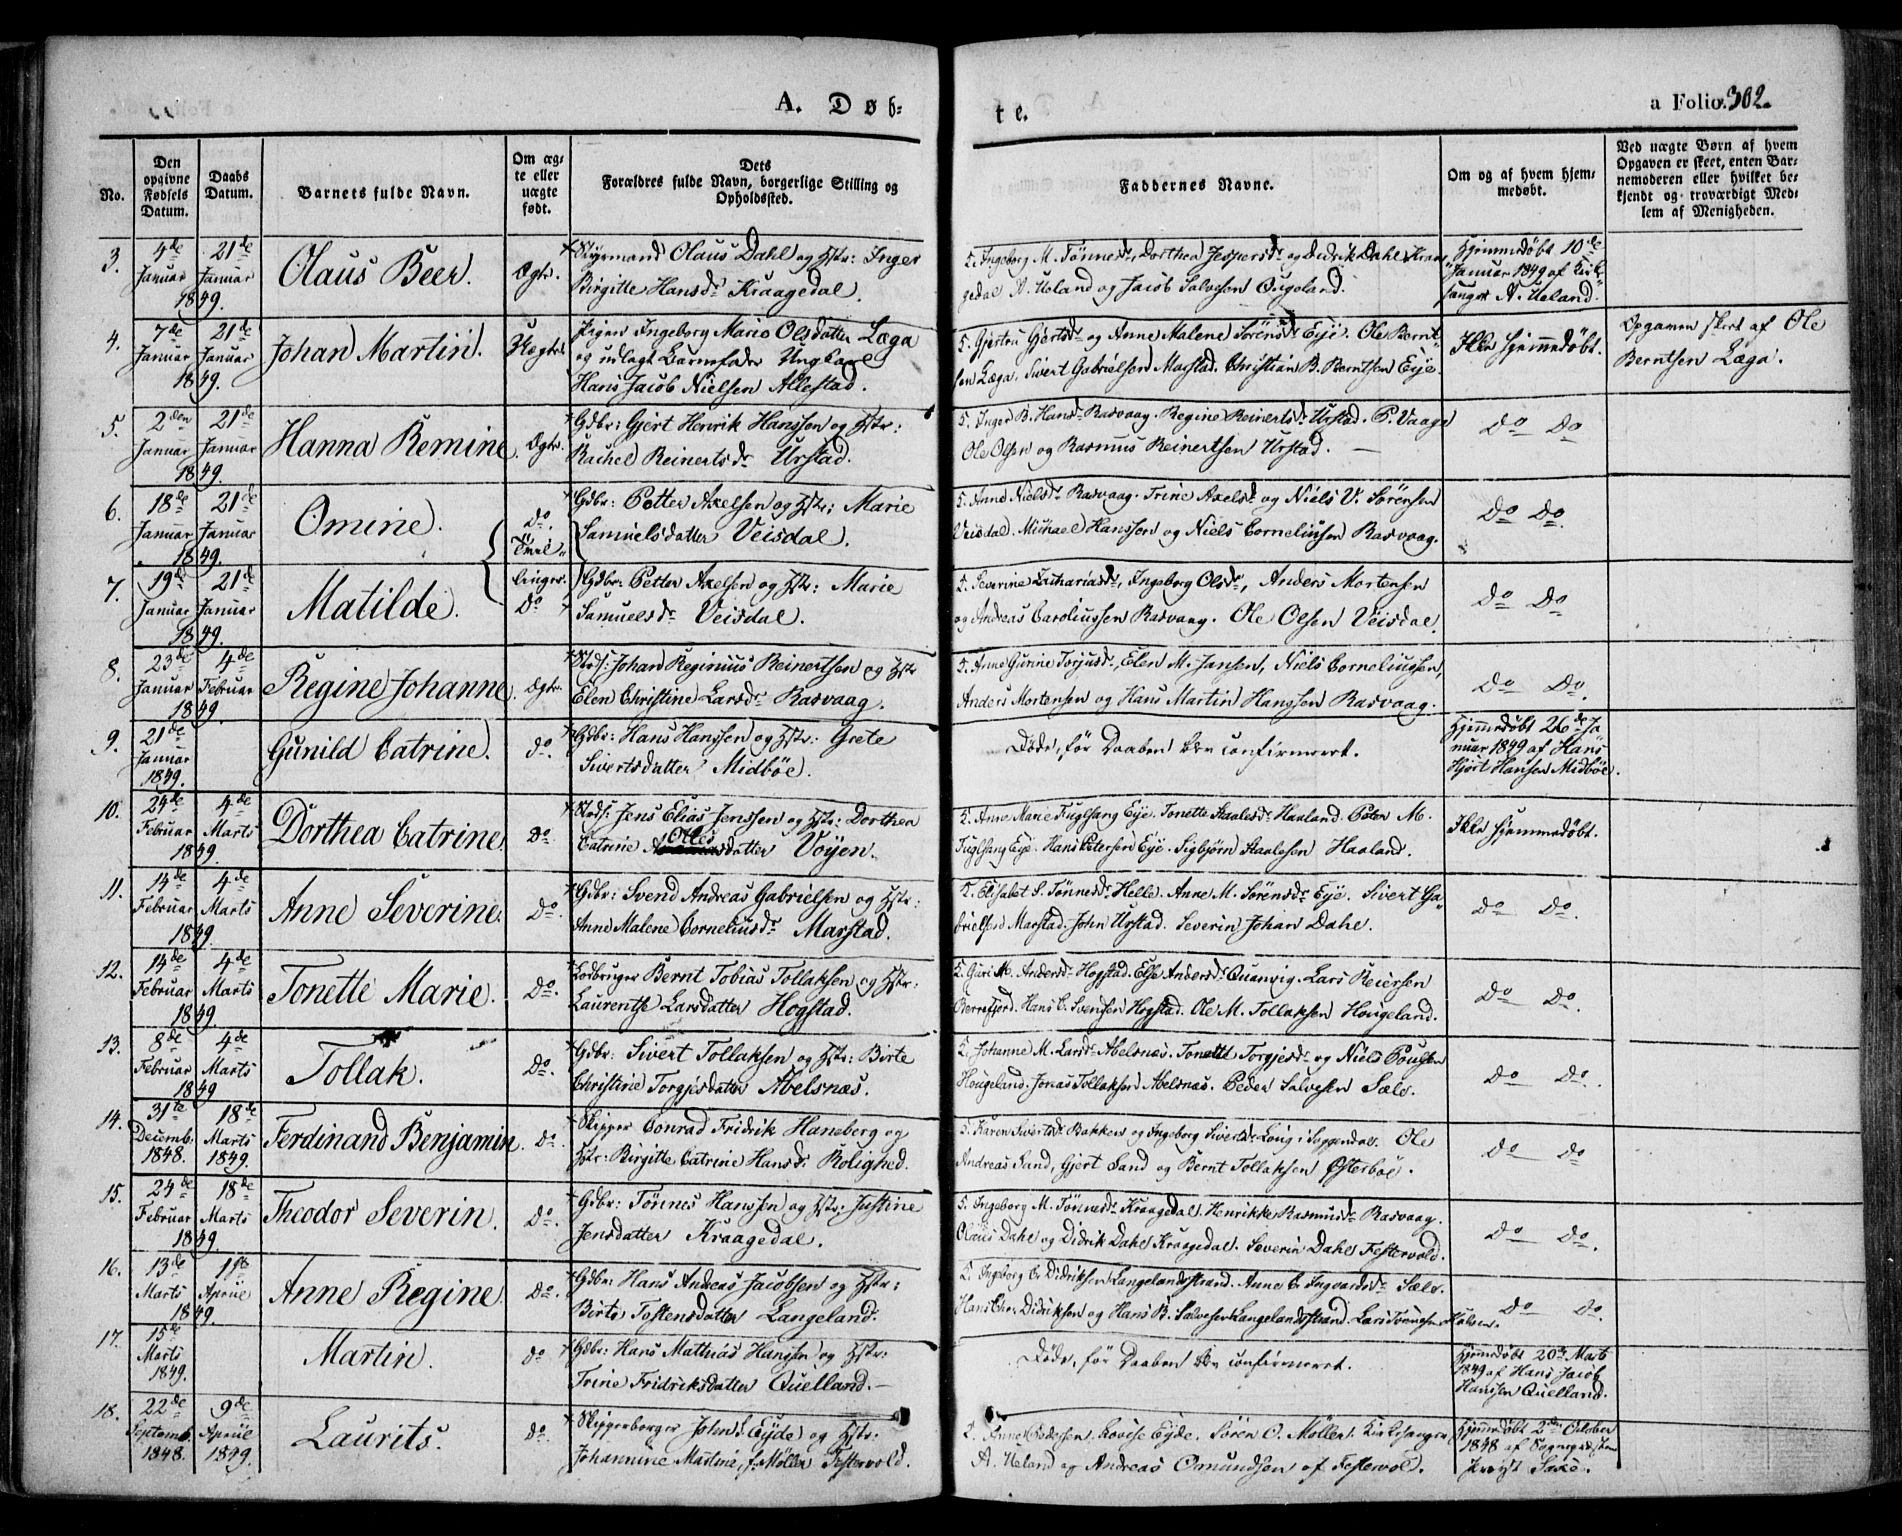 A. Døb-
te.
a Folio. 302.
No.
Den opgivne Fødsels Datum.
Daabs Datum.
Barnets fulde Navn.
Om ægte eller uægte født.
Dets Forældres fulde Navn, borgerlige Stilling og Opholdssted.
Faddernes Navne.
Om og af hvem hjemmedøbt.
Ved uægte Børn af hvem Opgaven er skeet, enten Barnemoderen eller hvilket bekjendt og troværdigt Medlem af Menigheden.
3. 4de Januar 1849. 21de Januar
Olaus Beer. Ægte.
Styrmand Olaus Dahl og Hstr: Inger
Birgitte Hansdr Kraagedal.
F. Ingeborg M. Tønnesdr, Dorthea Jespersdr og Didrik Dahl Kraa-
gedal A. Ueland og Jacob Salvesen Ougeland.
Hjemmedøbt 10de
Januar 1849 af Kirke-
sanger A. Ueland.
4. 7de Januar 1849. 21de Januar
Johan Martin. Uægte.
Pigen Ingeborg Marie Olsdatter Læga
og udlagt Barnefader Ungkarl
Hans Jacob Nielsen Allestad.
F. Gjertru Gjertsdr og Anne Malene Sørensdr Eye. Ole Bernt-
sen Læga. Sivert Gabrielsen Marstad. Christian B. Berntsen Eye.
Ikke hjemmedøbt.
Opgaven skeet af Ole
Berntsen Læga.
5. 2den Januar 1849. 21de Januar
Hanna Remine. Ægte.
Gdbr: Gjert Henrik Hanssen og Hstr:
Rachel Reinertsdr Urstad.
F. Inger B. Hansdr Rasvaag. Regine Reinertsdr Urstad. P. Vaage
Ole Olsen og Rasmus Reinertsen Urstad.
Do Do
6. 18de Januar 1849. 21de Januar
Omine. Do. Tvil-
Gdbr: Petter Axelsen og Hstr: Marie
Samuelsdatter Veisdal.
F. Anne Nielsdr Rasvaag. Trine Axelsdr og Niels V. Sørensen
Veisdal. Michael Hanssen og Niels Corneliussen Rasvaag.
Do Do.
7. 19de Januar 1849. 21de Januar
Matilde. linger. Do
Gdbr: Petter Axelsen og Hstr: Marie
Samuelsdr Veisdal.
F. Severine Zachariasdr, Ingeborg Olsdr, Anders Mortensen
og Andreas Caroliussen Rasvaag. Ole Olsen Veisdal.
Do Do
8. 23de Januar 1849. 4de Februar
Regine Johanne. Ægte.
Strds: Johan Reginius Reinertsen og Hstr
Elen Christine Larsdr Rasvaag.
F. Anne Gurine Torjusdr, Elen M. Jansen, Niels Corneliussen,
Anders Mortensen og Hans Martin Hanssen Rasvaag.
Do Do.
9. 21de Januar 1849.
Gunild Catrine. Do.
Gdbr: Hans Hanssen og Hstr: Grete
Sivertsdatter Midbøe.
Døde, før Daaben blev confirmeret.
Hjemmedøbt 26de Ja-
nuar 1849 af Hans
Hjort Hansen Midbøe.
10. 24de Februar 1849. 4de Marts
Dorthea Catrine. Do.
Strds: Jens Elias Jenssen og Hstr: Dorthea
Catrine Olesdatter Vøyen.
F. Anne Marie Fuglsang Eye. Tonette Staalesdr Haaland. Peter M.
Fuglsang Eye. Hans Petersen Eye. Sigbjørn Staalesen Haaland.
Ikke hjemmedøbt.
11. 14de Februar 1849. 4de Marts
Anne Severine. Do.
Gdbr: Svend Andreas Gabrielsen og Hstr:
Anne Malene Corneliusdr Marstad.
F. Elisabet S. Tønnesdr Helle. Anne M. Sørensdr Eye. Sivert Ga-
brielsen Marstad. John Urstad. Severin Johan Dahl.
Do Do.
12. 14de Februar 1849. 4de Marts
Tonette Marie. Do.
Jordbruger Bernt Tobias Tollaksen og Hstr:
Laurentse Larsdatter Hogstad.
F. Guri M. Andersdr Hogstad. Else Andersdr Quanvig. Lars Reiersen
Berrefjord. Hans C. Svensen Hogstad. Ole M. Tollaksen Hougeland.
Do Do.
13. 8de Februar 1849. 4de Marts
Tollak. Do.
Gdbr: Sivert Tollaksen og Hstr: Birte
Christine Torgjesdatter Abelsnæs.
F. Johanne M. Larsdr Abelsnæs. Tonette Torgjesdr og Niels Poulsen
Hougeland. Jonas Tollaksen Abelsnæs. Peder Salvesen Sæls.
Do Do.
14. 31te Decemb. 1848. 18de Marts 1849.
Ferdinand Benjamin. Do.
Skipper Conrad Fridrik Haneberg og
Hstr: Birgitte Catrine Hansdr Rolighed.
F. Karen Sivertsdr Bakken og Ingeborg Sivertsdr Loug i Soggendal. Ole
Andreas Sand, Gjert Sand og Bernt Tollaksen Østerbøe.
Do Do
15. 24de Februar 1849. 18de Marts
Theodor Severin. Do.
Gdbr: Tønnes Hanssen og Hstr: Justine
Jensdatter Kraagedal.
F. Ingeborg M. Tønnesdr Kraagedal. Henrikke Rasmusdr Rasvaag.
Olaus Dahl og Didrik Dahl Kraagedal. Severin Dahl Festervold.
Do Do.
16. 13de Marts 1849. 1ste Apriil
Anne Regine. Do.
Gdbr: Hans Andreas Jacobsen og Hstr:
Birte Tostensdatter Langeland.
F. Ingeborg C. Didriksen Langelandstrand. Anne C. Ingvardsdr Sæls.
Hans Chr. Didriksen og Hans B. Salvesen Langelandstrand. Lars Tønnesen
Do Do.
17. 15de Marts 1849.
Martin. Do
Gdbr: Hans Mathias Hanssen og Hstr:
Trine Fridriksdatter Quelland.
Døde, før Daaben blev confirmeret.
Hjemmedøbt 20de Marts
1849 af Hans Jacob
Hanssen Quelland.
18. 22de Septemb. 1848. 9de Apriil 1849.
Laurits. Do.
Skipperborger John L. Eyde og Hstr:
Johannine Martine, f. Møller Festervold.
F. Anne Pedesen. Lovise Eyde. Søren O. Møller. Kirkesanger
A. Ueland og Andreas Omundsen af Festervold.
Hjemmedøbt 2den October
1848 af Sognepræsten
Provst Saxe.